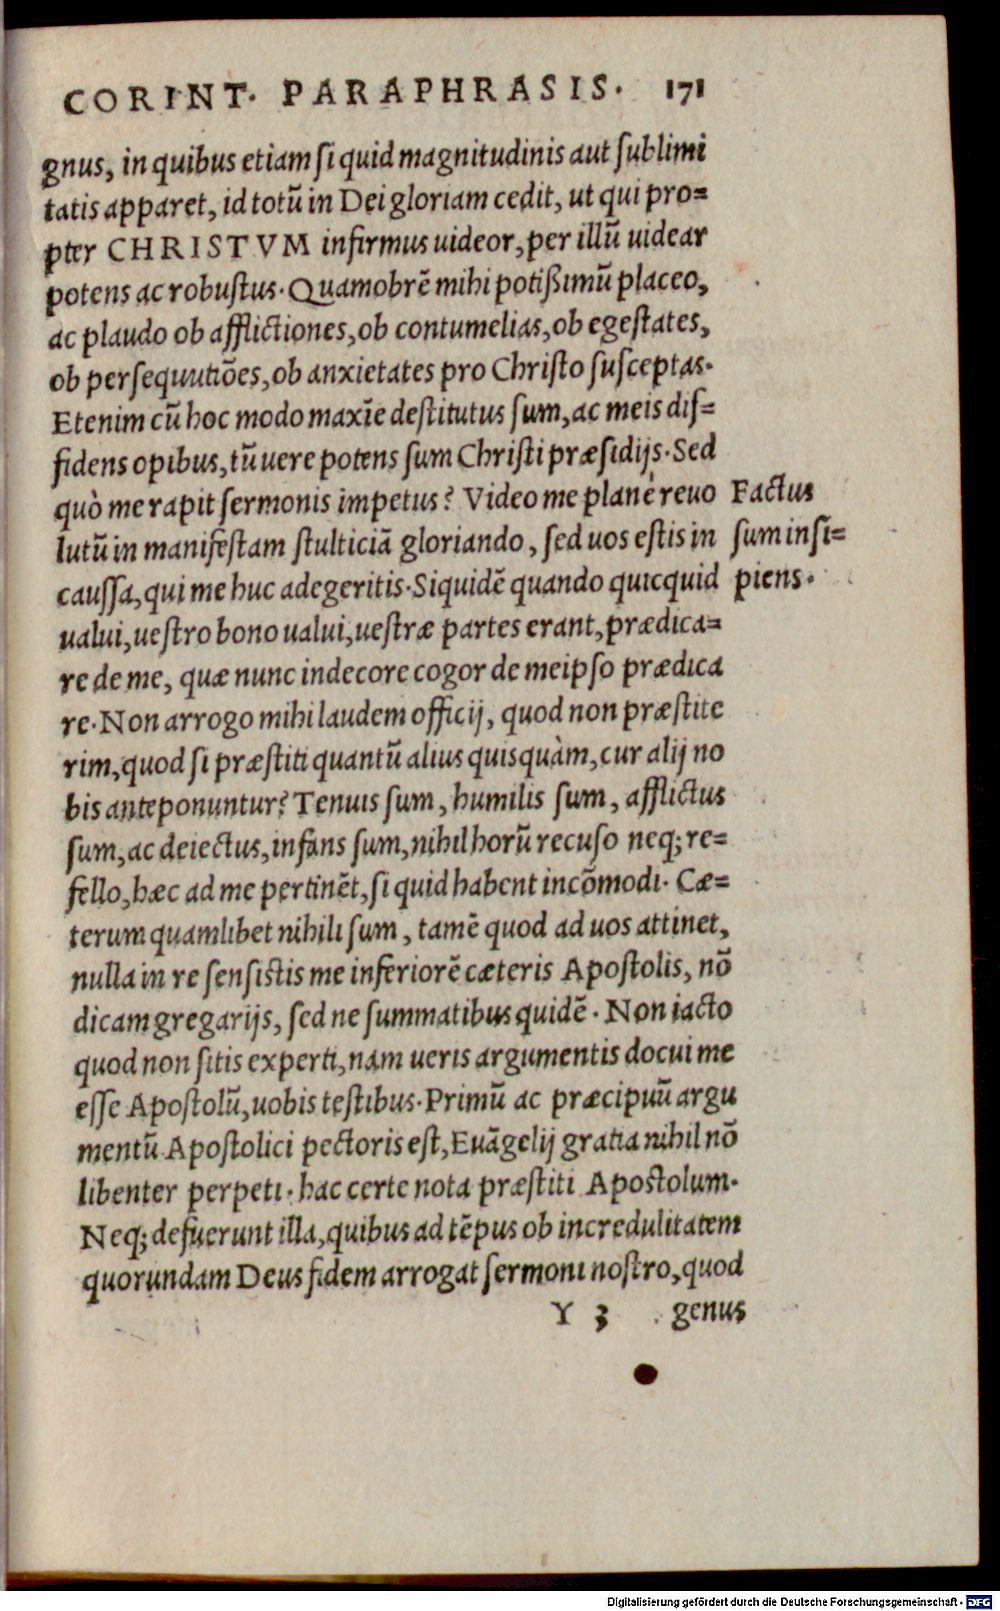 CORINT. PARAPHRASIS. 171
gnus, in quibus etiam si quid magnitudinis aut sublimi
tatis apparet, id totũ in Dei gloriam cedit, ut qui pro=
pter CHRISTVM infirmus uideor, per illũ uidear
potens ac robustus. Quamobrẽ mihi potißimũ placeo,
ac plaudo ob afflictiones, ob contumelias, ob egestates,
ob persequutiões, ob anxietates pro Christo susceptas.
Etenim cũ hoc modo maxĩe destitutus sum, ac meis dif=
fidens opibus, tũ uere potens sum Christi præsidijs. Sed
quò me rapit sermonis impetus? Video me planè reuo
lutũ in manifestam stulticiã gloriando, sed uos estis in
caussa, qui me huc adegeritis. Siquidẽ quando quicquid
ualui, uestro bono ualui, uestræ partes erant, prædica=
re de me, quæ nunc indecore cogor de meipso prædica
re. Non arrogo mihi laudem officij, quod non præstite
rim, quod si præstiti quantũ alius quisquàm, cur alij no
bis anteponuntur? Tenuis sum, humilis sum, afflictus
sum, ac deiectus, infans sum, nihil horũ recuso neq; re=
fello, hæc ad me pertinẽt, si quid habent incõmodi. Cæ=
terum quamlibet nihili sum, tamẽ quod ad uos attinet,
nulla in re sensistis me inferiorẽ cæteris Apostolis, nõ
dicam gregarijs, sed ne summatibus quidẽ. Non iacto
quod non sitis experti, nam ueris argumentis docui me
esse Apostolũ, uobis testibus. Primũ ac præcipuũ argu
mentũ Apostolici pectoris est, Euãgelij gratia nihil nõ
libenter perpeti. hac certe nota præstiti Apostolum.
Neq; defuerunt illa, quibus ad tẽpus ob incredulitatem
quorundam Deus fidem arrogat sermoni nostro, quod
Y 3 genus
Factus
sum insi=
piens.
Digitalisierung gefördert durch die Deutsche Forschungsgemeinschaft - DFG